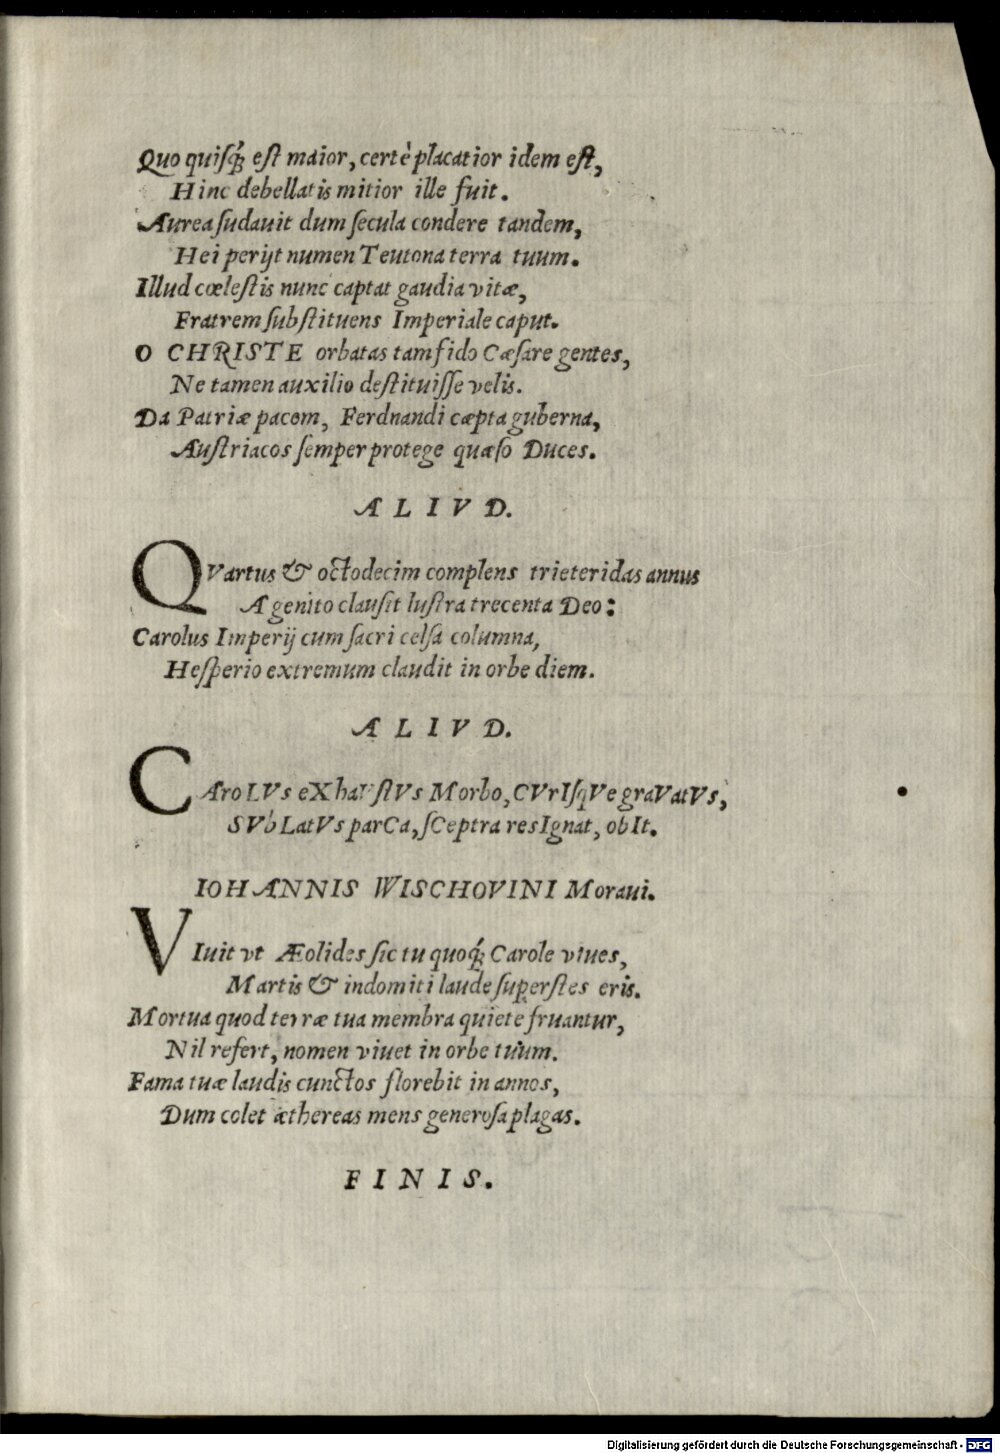 Quo quisq́; eſt maior, certè placatior idem eſt,
Hinc debellatis mitior ille fuit.
Aurea ſudauit dum ſecula condere tandem,
Hei perijt numen Teutona terra tuum.
Illud cœleſtis nunc captat gaudia vitæ,
Fratrem ſubſtituens Imperiale caput.
O CHRISTE orbatas tam fido Cæſare gentes,
Ne tamen auxilio deſtituiſſe velis.
Da Patriæ pacem, Ferdnandi cæpta guberna,
Auſtriacos ſemper protege quæſo Duces.
ALIVD.
QVartus & octodecim complens trieteridas annus
A genito clauſit luſtra trecenta Deo:
Carolus Imperij cum ſacri celſa columna,
Heſperio extremum claudit in orbe diem.
ALIVD.
CAroLVs eXhaVſtVs Morbo, CVrIſqVe graVatVs,
SVbLatVs parCa, ſCeptra resIgnat, obIt.
IOHANNIS WISCHOVINI Moraui.
VIuit vt Æolides ſic tu quoq́; Carole viues,
Martis & indomiti laude ſuperſtes eris.
Mortua quod terræ tua membra quiete fruantur,
Nil refert, nomen viuet in orbe tuum.
Fama tuæ laudis cunctos florebit in annos,
Dum colet æthereas mens generoſa plagas.
FINIS.
Digitalisierung gefördert durch die Deutsche Forschungsgemeinschaft - DFG